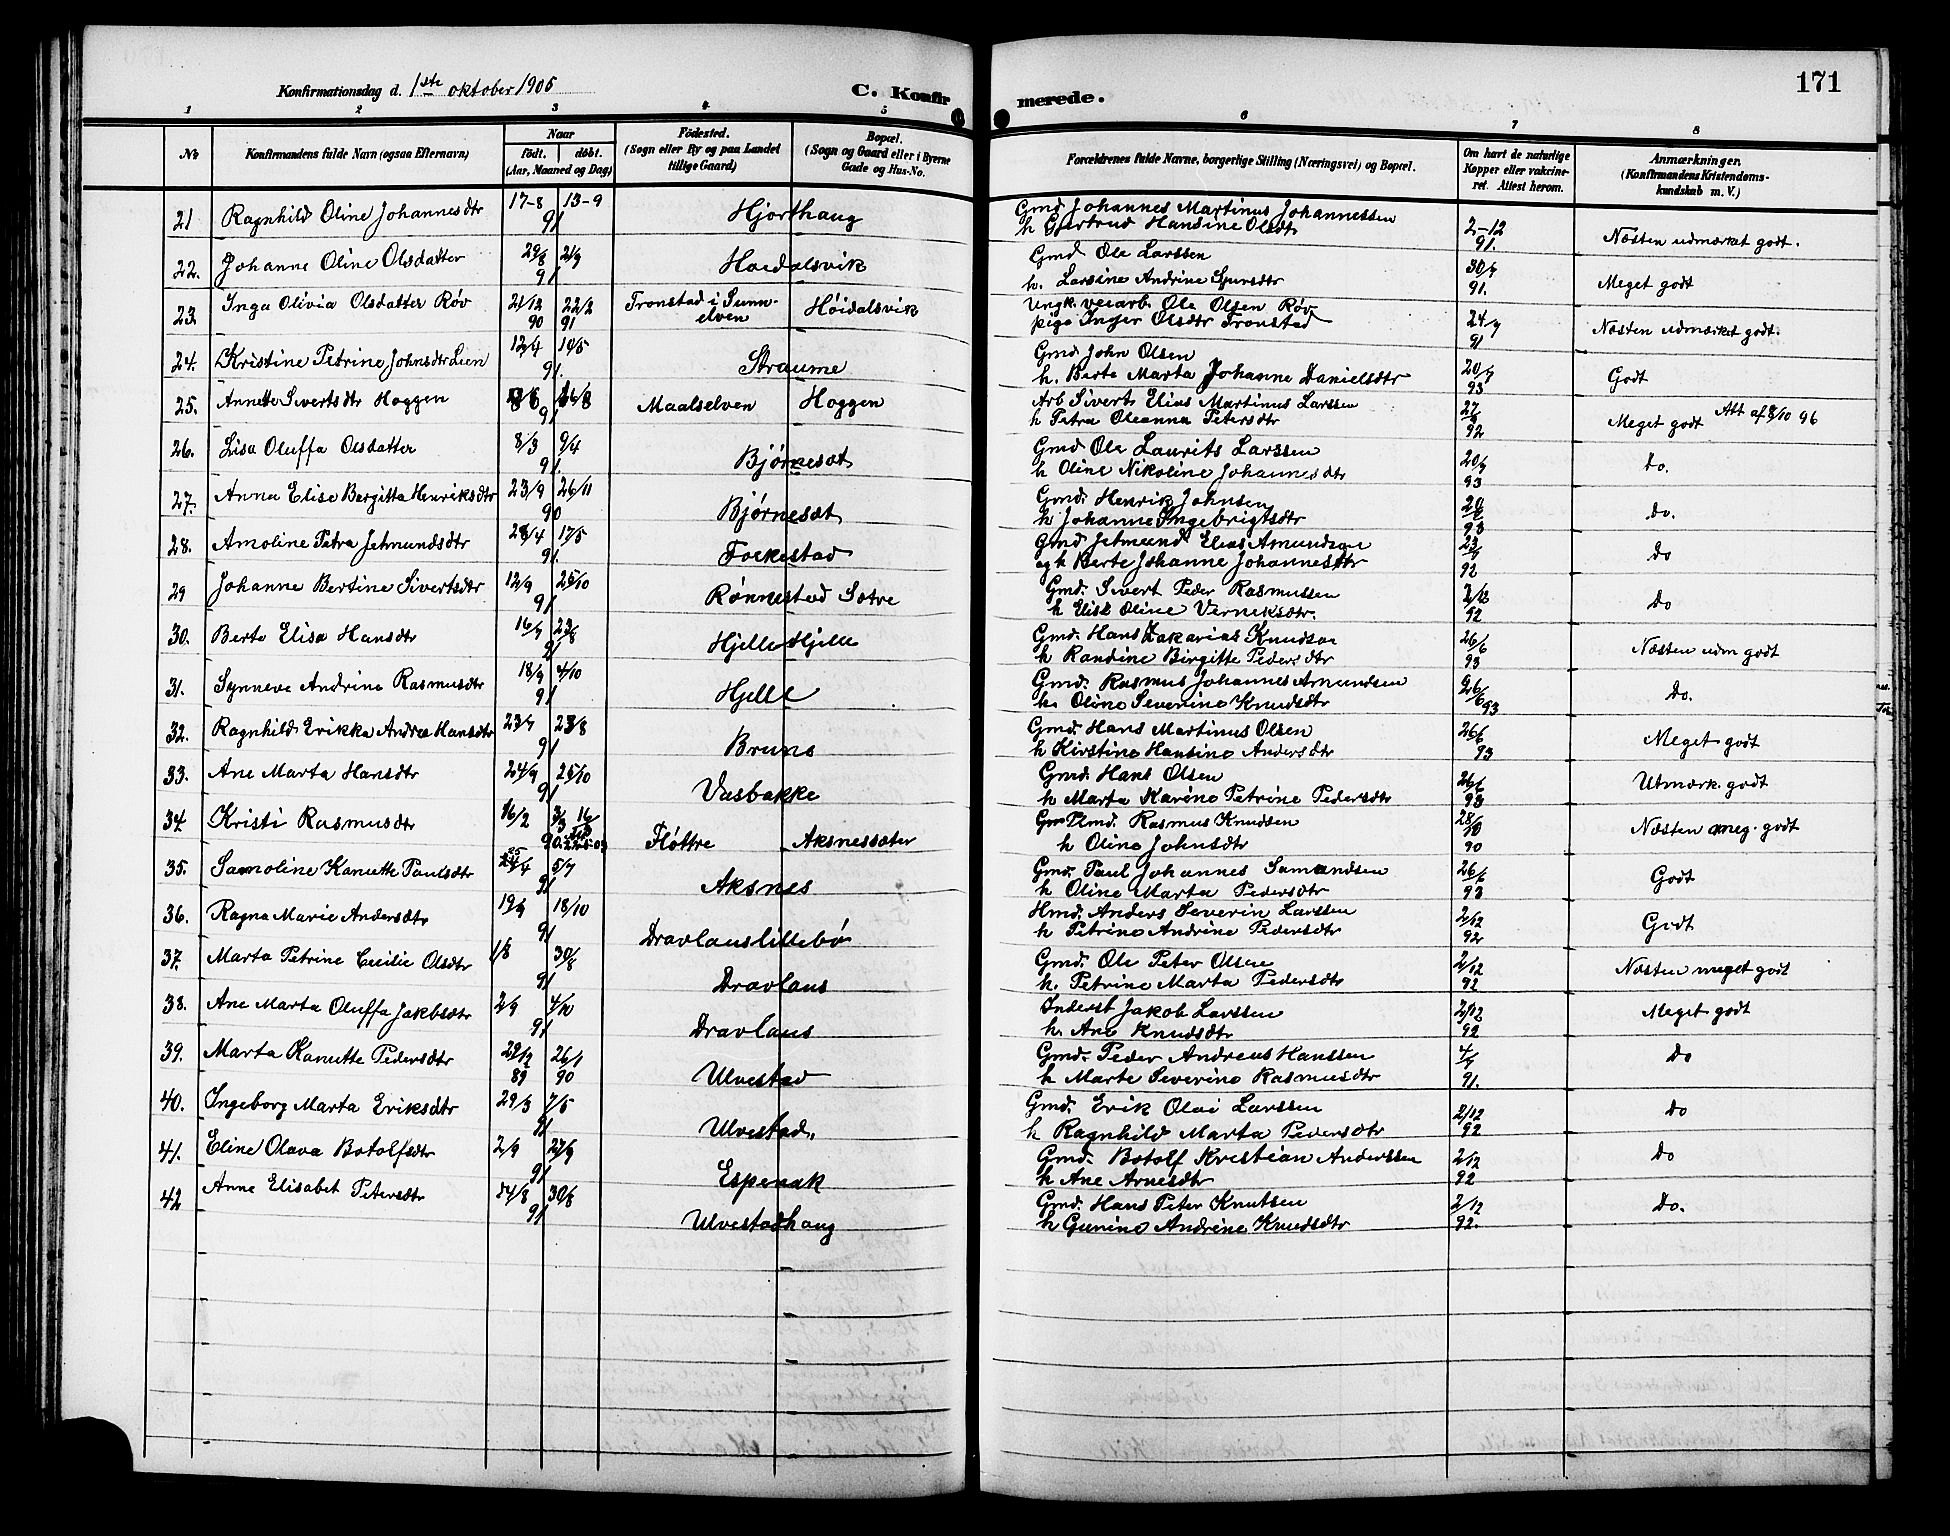 171
Konfirmationsdag d. 1ste oktober 1905
C. Konfirmerede.
1 2 3 4 5 6 7 8
No
Konfirmandens fulde Navn (ogsaa Efternavn)
Naar
født. døbt.
(Aar, Maaned og Dag)
Fødested.
(Sogn eller By og paa Landet
tillige Gaard)
Bopæl.
(Sogn og Gaard eller i Byerne
Gade og Hus-No.
Forældrenes fulde Navne, borgerlige Stilling (Næringsvei) og Bopæl.
Om havt de naturlige
Kopper eller vakcine-
ret. Attest herom.
Anmærkninger.
(Konfirmandens Kristendoms-
kundskab m. V.)
21 Ragnhild Oline Johannesdtr 17-8 13-9 91 Hjorthaug Gmd Johannes Martinus Johannessen
h Gjertrud Hansine Olsdtr 2-12 91. Næsten udmærket godt.
22. Johanne Oline Olsdatter 29/8 21/9 91 Hoidalsvik Gmd Ole Larssen
h. Larsine Andrine Spursdtr 30/9 91. Meget godt
23. Inga Olivia Olsdatter Røv 21/12 90 22/2 91 Fronstad i Sunn-
elven Høidalsvik Ungk. veiarb. Ole Olsen Røv
pige Inger Olsdtr Fronstad 24/9 91 Næsten udmærket godt.
24. Kristine Petrine Johnsdtr Lien 12/4 10/5 91. Straume Gmd John Olsen
h. Berte Marta Johanne Danielsdtr 20/9 93 Godt
25. Annette Sivertsdtr Hoggen 26/8 91 Maalselven Hoggen Arb Sivert Elias Martinus Larssen
h Petra Oleanna Petersdtr 27/9 92 Meget godt Att af 8/10 96
26. Lisa Oluffa Olsdatter 8/3 9/4 91. Bjørnesæt Gmd Ole Laurits Larssen
h Oline Nikoline Johannesdtr 20/9 93 Do.
27. Anna Elise Bergitta Henriksdtr 23/9 26/11 90 Bjørnesæt Gmd. Henrik Johnsen
h Johanne Ingebrigtsdtr 93 Do.
28. Amoline Petra Jetmundsdtr 28/4 17/5 91. Folkestad Gmd Jetmund Elias Amundsen
og h Berte Johanne Johannesdtr 92 Do
29 Johanne Bertine Sivertsdtr 12/9 25/10 91 Rønnestad Sætre Gmd. Sivert Peder Rasmussen
h Elise Oline Verniksdtr. 2/12 92 Do
30. Berte Elisa Hansdtr 16/7 23/8 91 Hjelle Hjelle Gmd. Hans Zakarias Knudsen
h Randine Birgitte Pedersdtr 26/6 93 Næsten udm godt
31. Synneve Andrine Rasmusdtr 18/9 4/10 91 Hjelle Gmd. Rasmus Johannes Amundsen
h. Oline Severine Knudsdtr 26/6 93 Do.
32. Ragnhild Erikka Andrea Hansdtr 23/7 23/8 91 Brune Gmd. Hans Martinus Olsen
h Kirstine Hansine Andersdtr 26/6 93 Meget godt
33. Ane Marta Hansdtr 24/9 25/10 91 Vasbakke Gmd. Hans Olsen
h Marta Karine Petrine Pedersdtr 26/6 93 Utmærk. godt
34. Kristi Rasmusdtr 16/2 3/3 90. Fløttre Aksnessæter Plmd. Rasmus Knudsen
h Oline Johnsdtr 28/10 90 Næsten meg. godt
35. Samoline Kanutte Paulsdtr 25/4 5/7 91 Aksnes Gmd. Paul Johannes Samundsen
h Oline Marta Pedersdtr 26/6 93 Godt
36. Ragna Marie Andersdtr 19/9 18/10 91 Dravlauslillebø Hmd. Anders Severin Larssen
h Petrine Andrine Pedersdtr 2/12 92 Godt
37. Marta Petrine Cecilie Olsdtr 1/8 30/8 91 Dravlaus Gmd. Ole Peter Olsen
h. Petrine Marta Pedersdtr 2/12 92 Næsten meget godt
38. Ane Marta Oluffa Jakbsdtr 2/9 4/10 91 Dravlaus Inderst Jakob Larssen
h. Ane Knudsdtr 2/12 92 Meget godt
39. Marta Kanutte Pedersdtr 29/12 89 26/1 90 Ulvestad Gmd. Peder Andreas Hanssen
h Marte Severine Rasmusdtr 4/9 91. Do
40. Ingeborg Marta Eriksdtr 29/3 7/5 91 Ulvestad. Gmd. Erik Olai Larssen
h Ragnhild Marta Pedersdtr 2/12 92 Do
41. Eline Olava Botolfsdtr 2/9 27/9 91 Espenak Gmd. Botolf Kristian Anderssen
h Ane Arnesdtr 2/12 92 Do
42 Anne Elisabet Petersdtr 14/8 30/8 91 Ulvestadhaug Gmd. Hans Peter Knutsen
h Gunine Andrine Knudsdtr 2/12 92. Do.